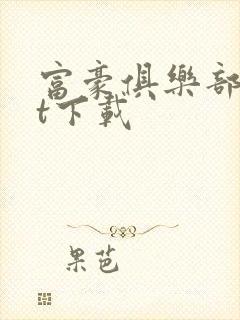 富豪俱樂部
t下載
果芭